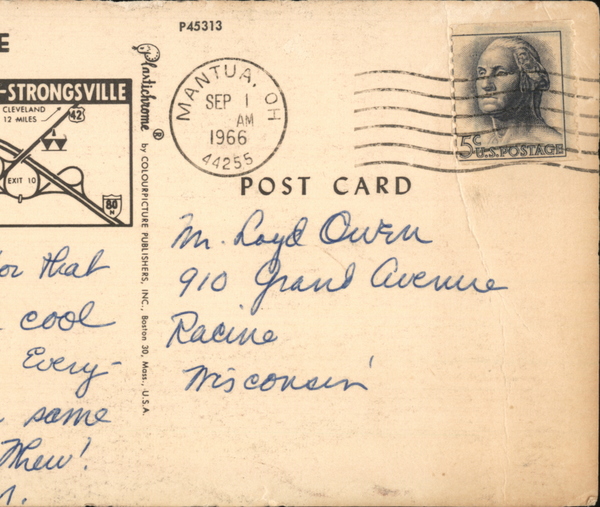 E
-STRONGSVILLE
CLEVELAND
12 MILES
42
EXIT 10
80
N
or that
cool
Every-
same
Whew!
P45313
Plastichrome ® by COLOURPICTURE PUBLISHERS, INC., Boston 30, Mass., U.S.A.
MANTUA, OH
SEP 1
AM
1966
44255
5c
U.S. POSTAGE
POST CARD
Mr. Loyd Owen
910 Grand Avenue
Racine
Wisconsin